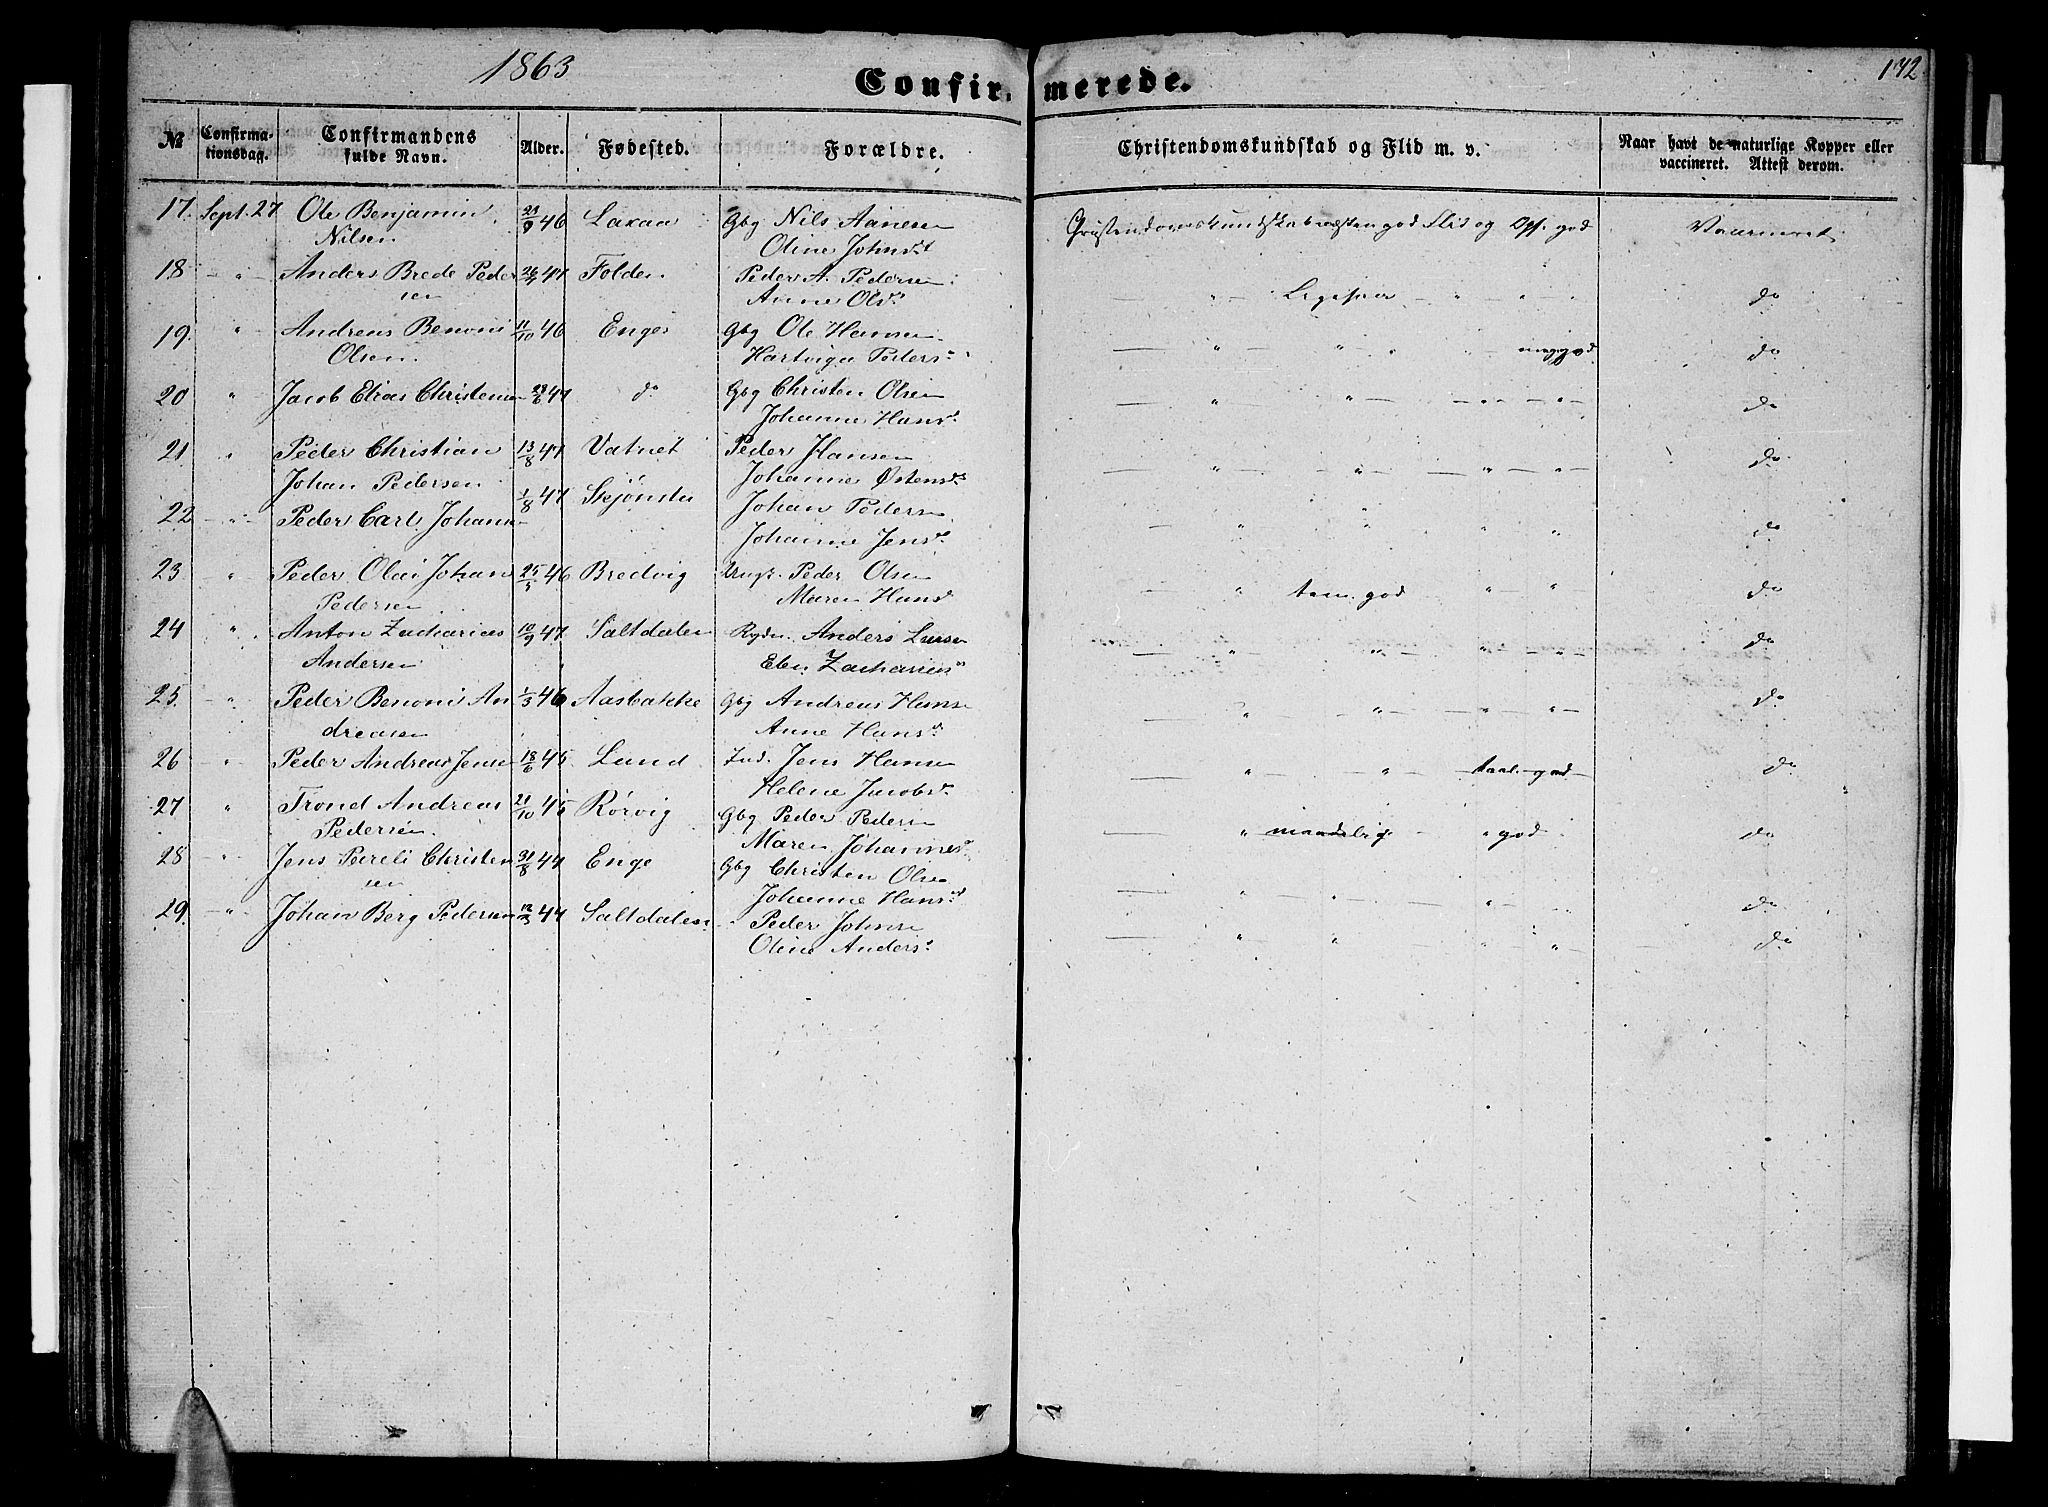 1863
Confirmerede.
142
№
Confirmationsdag.
Confirmandens fulde Navn.
Alder.
Fødested.
Forældre.
Christendomskundskab og Flid m. v.
Naar havt de naturlige Kopper eller vaccineret. Attest derom.
17. Sept. 27 Ole Benjamin 46 Laxaa Gbg Nils Aanesen Christendomskundskab næsten god Flid og Opf. god Vaccineret
Nilsen Oline Johnsdt
18 - " - Anders Brede Peder 47 Folden Peder A. Pedersen - " - " " " do
sen Anne Olsd.
19. " Andreas Benoni 11/10 46 Enges Gbg Ole Hansen — " " " " meg. god do
Olsen. Hartviga Peders
20 " Jacob Elias Christensen 47 do Gbg Christen Olsen — " " " " do
Johanne Hansd.
21 " Peder Christian 13/8 47 Vatnet Peder Hansen — " " " " do
Johan Pedersen Johanne Østensd.
22 - " - Peder Carl Johans 1/8 47 Skjønsta Johan Pedersen — " " " " do
Johanne Jensd.
23 " Peder Olai Johan 46 Bredvig Peder Olsen — " tem. god " " do
Pedersen Maren Hansd
24 " Anton Zacharias 10/9 47 Saltdalen Anders Larsen — " " " " do
Andersen Zacharias
25. " Peder Benoni An 1/3 46 Aasbakke Gbg Andreas Hansen — " " " " do
dreasen Anne Hansd.
26 " Peder Andreas Jensen 18/6 45 Lund Ind. Jens Hansen — " " taal. god do
Helene Jacobsd.
27 " Trond Andreas 21/10 45 Rørvig Gbg Peder Pedersen " maadelig " god do
Pedersen. Maren Johannes
28 " Jens Christen 31/8 47 Enge Gbg Christen Olsen — " " " " do
sen Johanne Hansd.
29. " Johan Berg Pedersen 47 Saltdalen Peder Johnsen — " " " " do
Oline Anders